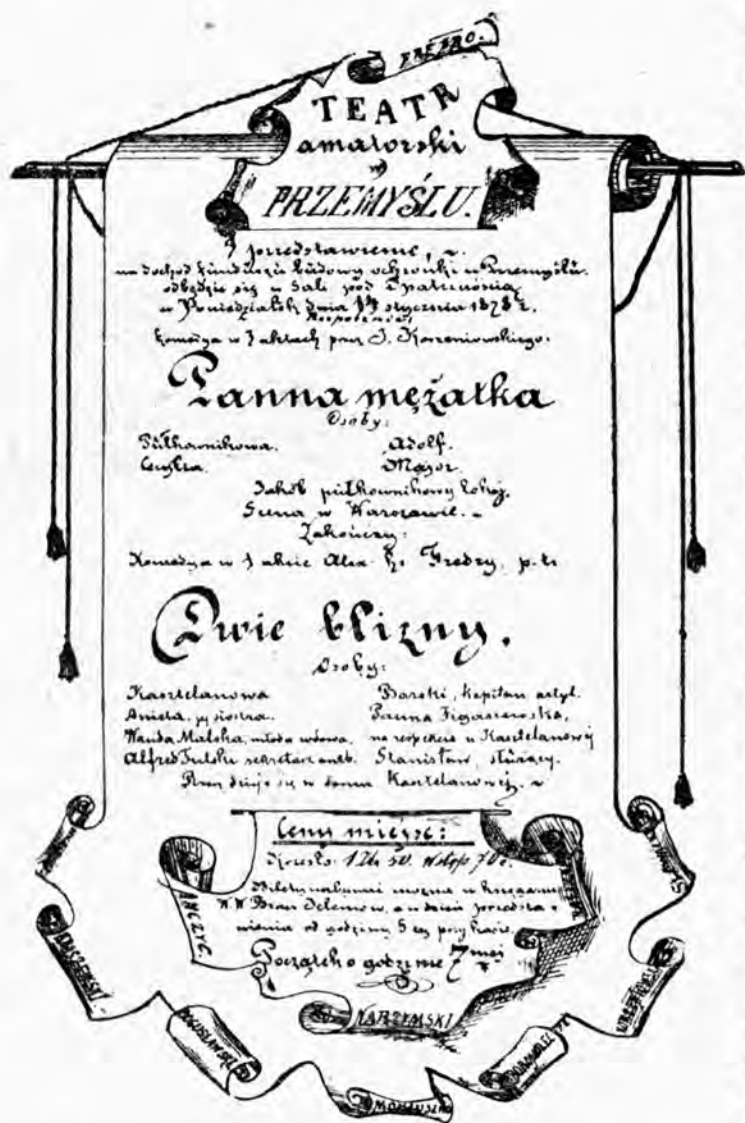 FREDRO.
TEATR
amatorski
w
PRZEMYŚLU.
przedstawienie,
na dochód funduszu budowy ochronki w Przemyślu
odbędzie się w Sali pod Opatrznością
w Poniedziałek dnia 14 stycznia 1878 r.
Rozpocznie:
Komedya w aktach przez J. Korzeniowskiego:
Panna mężatka
Osoby:
Pułkownikowa. Adolf.
Cecylia. Major.
Jakób pułkownikowy lokaj.
Scena w Warszawie.
Zakończy:
Komedya w 1 akcie Alex. hr. Fredry, p. t.
Dwie blizny.
Osoby:
Kasztelanowa Barski, kapitan artyl.
Aniela, jej siostra. Panna
Wanda Malska, młoda wdowa. na respekcie u Kasztelanowej
Alfred sekretarz amb. Stanisław, służący.
Rzecz dzieje się w domu Kasztelanowej.
Ceny miejsc:
Krzesło 1 Złr 50. Wstęp 70 c.
Bilety nabywać można w księgarni
W W Braci Jeleniów, a w dzień przedsta-
wienia od godziny 5 tej przy kasie.
Początek o godzinie 7 mej
ANCZYC.
NARZYMSKI
BOGUSŁAWSKI
MONIUSZKO